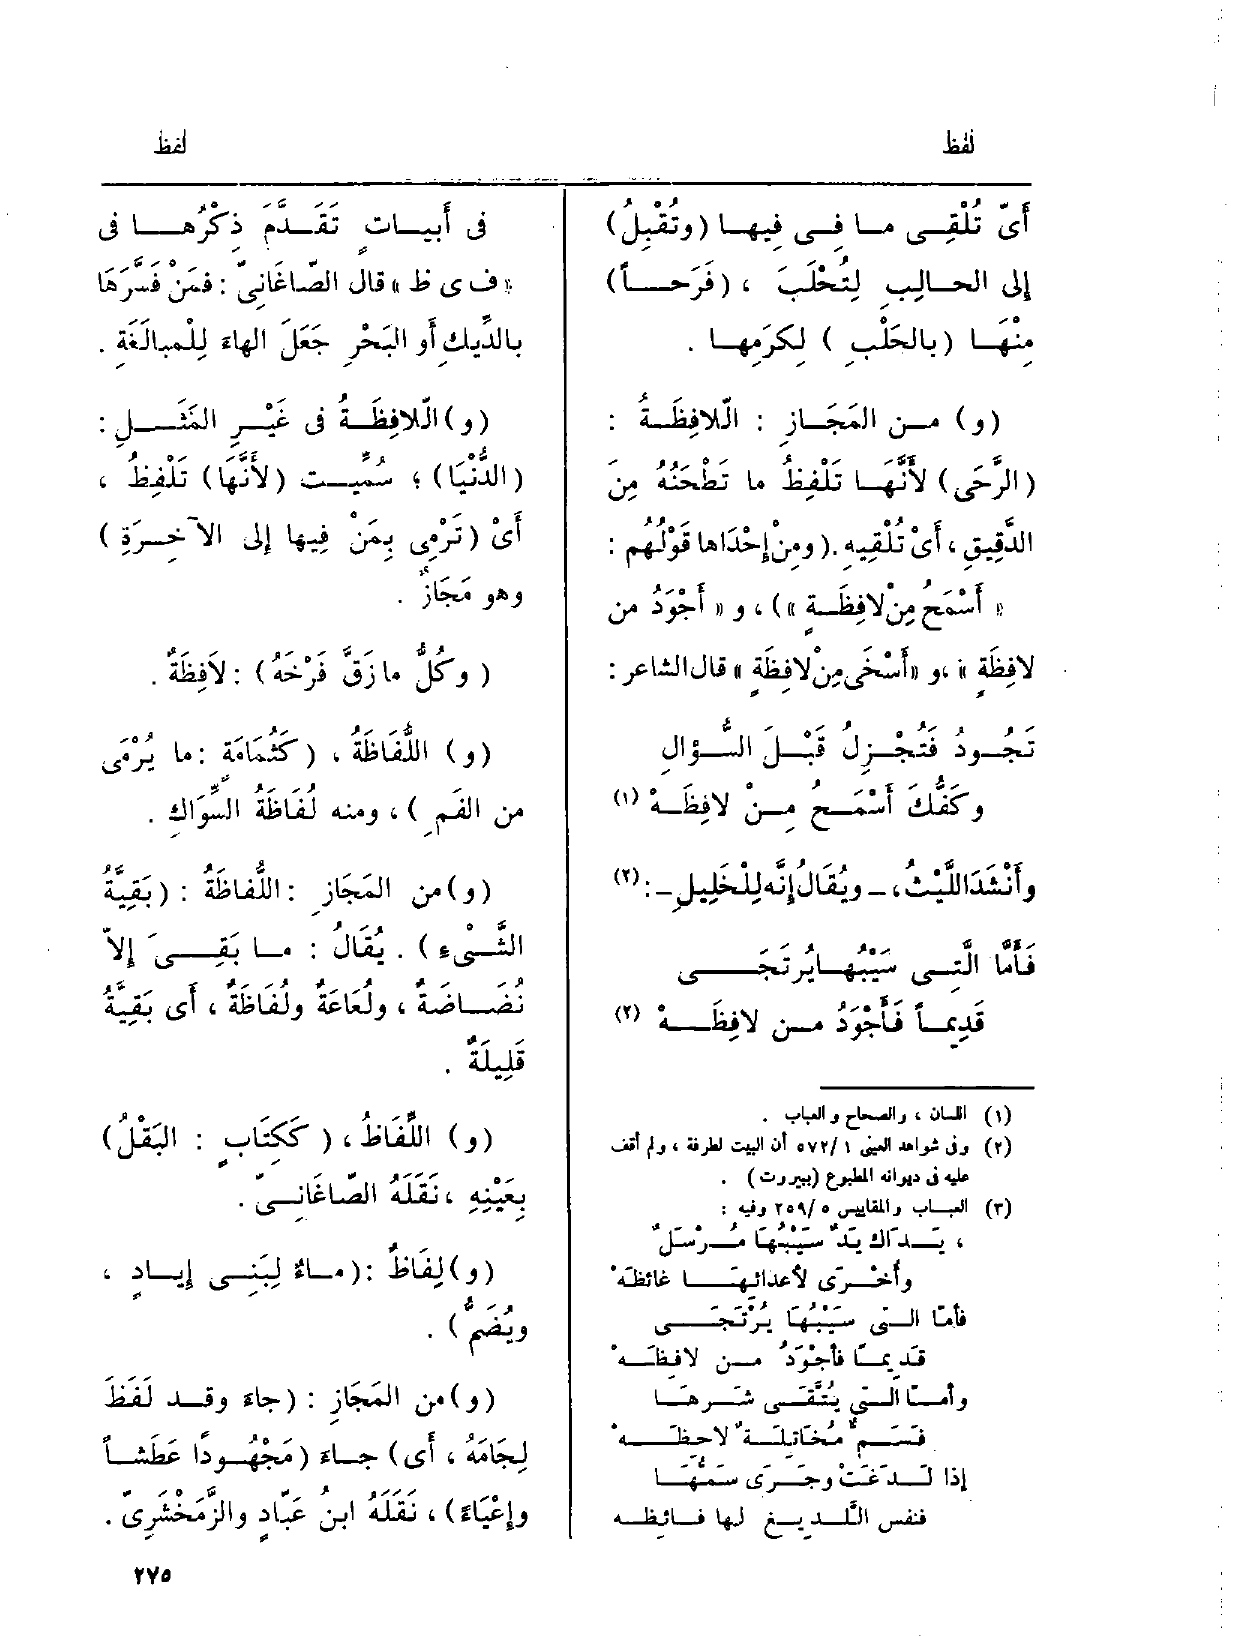 لفظ
لفظ
أَىْ تُلْقِى ما فِى فِيها (وتُقْبِلُ)
إلى الحالِبِ لِتُحْلَبَ ، (فَرَحاً)
مِنْهَا (بالحَلْبِ) لِكَرَمِها .
(و) من المَجَازِ : الَّلافِظَةُ :
(الرَّحَى) لأَنَّهَا تَلْفِظُ ما تَطْحَنُهُ مِن
الدَّقِيقِ ، أَىْ تُلْقِيهِ . (ومنْ إِحْدَاها قَوْلُهم :
« أَسْمَحُ مِنْ لافِظَةٍ ») ، و « أَجْوَدُ من
لافِظَةٍ » ، و «أَسْخَى مِنْ لافِظَةٍ » قال الشاعر :
تَجُودُ فَتُجْزِلُ قَبْلَ السُّؤالِ
وكَفُّكَ أَسْمَحُ مِنْ لافِظَهْ (١)
وأَنْشَدَ اللَّيْثُ ، – ويُقَالُ إِنَّه لِلْخَلِيلِ – : (٢)
فَأَمَّا الَّتِى سَيْبُها يُرْتَجَى
قَدِيماً فَأَجْوَدُ من لافِظَهْ (٣)
(١) اللسان ، والصحاح والعباب .
(٢) وفى شواهد العينى ٥٧٢/١ أن البيت لطرفة ، ولم أقف
عليه فى ديوانه المطبوع (بيروت) .
(٣) العباب والمقاييس ٢٥٩/٥ وفيه :
، يَدَاك يَدٌ سَيْبُهَا مُرْسَلٌ
وأُخْرَى لأعدائها غائظَهْ
فأمّا التى سَيْبُهَا يُرْتَجَى
قَدِيمًا فأجْوَدُ من لافِظَهْ
وأمّا التى يُتَّقَى شَرهَا
فَسَمٌ مُخَاتِلَةٌ لاحِظَهْ
إذا لَدغَتْ وجَرَى سَمُّهَا
فنفس اللَّدِيغِ لها فائظه
فى أَبياتٍ تَقَدَّمَ ذِكْرُها فى
« ف ى ظ » قال الصّاغَانِىّ : فمَنْ فَسَّرَهَا
بالدِّيكِ أَو البَحْرِ جَعَلَ الهاءَ لِلْمبالَغَةِ .
(و) الَّلافِظَةُ فى غَيْرِ المَثَلِ :
(الدُّنْيَا) ؛ سُمِّيت (لأَنَّهَا) تَلْفِظُ ،
أَىْ (تَرْمِى بِمَنْ فِيها إِلى الآخِرَةِ)
وهو مَجَازٌ .
(وكُلُّ ما زَقَّ فَرْخَهُ) : لافِظَةٌ .
(و) اللُّفَاظَةُ ، (كثُمَامَة : ما يُرْمَى
من الفَمِ) ، ومنه لُفَاظَةُ السِّوَاكِ .
(و) من المَجَازِ : اللُّفَاظَةُ : (بَقِيَّةُ
الشَّىْءِ) . يُقَالُ : ما بَقِىَ إِلاَّ
نُضَاضَةٌ ، ولُعَاعَةٌ ولُفَاظَةٌ ، أَى بَقِيَّةٌ
قَلِيلَةٌ .
(و) اللَّفَاظُ ، (كَكِتَابٍ : البَقْلُ)
بِعَيْنِهِ ، نَقَلَهُ الصّاغَانِىّ .
(و) لِفَاظٌ : (ماءٌ لِبَنِى إِيادٍ ،
ويُضَمُّ) .
(و) من المَجَازِ : (جاءَ وقد لَفَظَ
لِجَامَهُ ، أَى) جاءَ (مَجْهُودًا عَطَشاً
وإِعْيَاءً) ، نَقَلَهُ ابنُ عَبّادٍ والزَّمَخْشَرِىّ .
٢٧٥